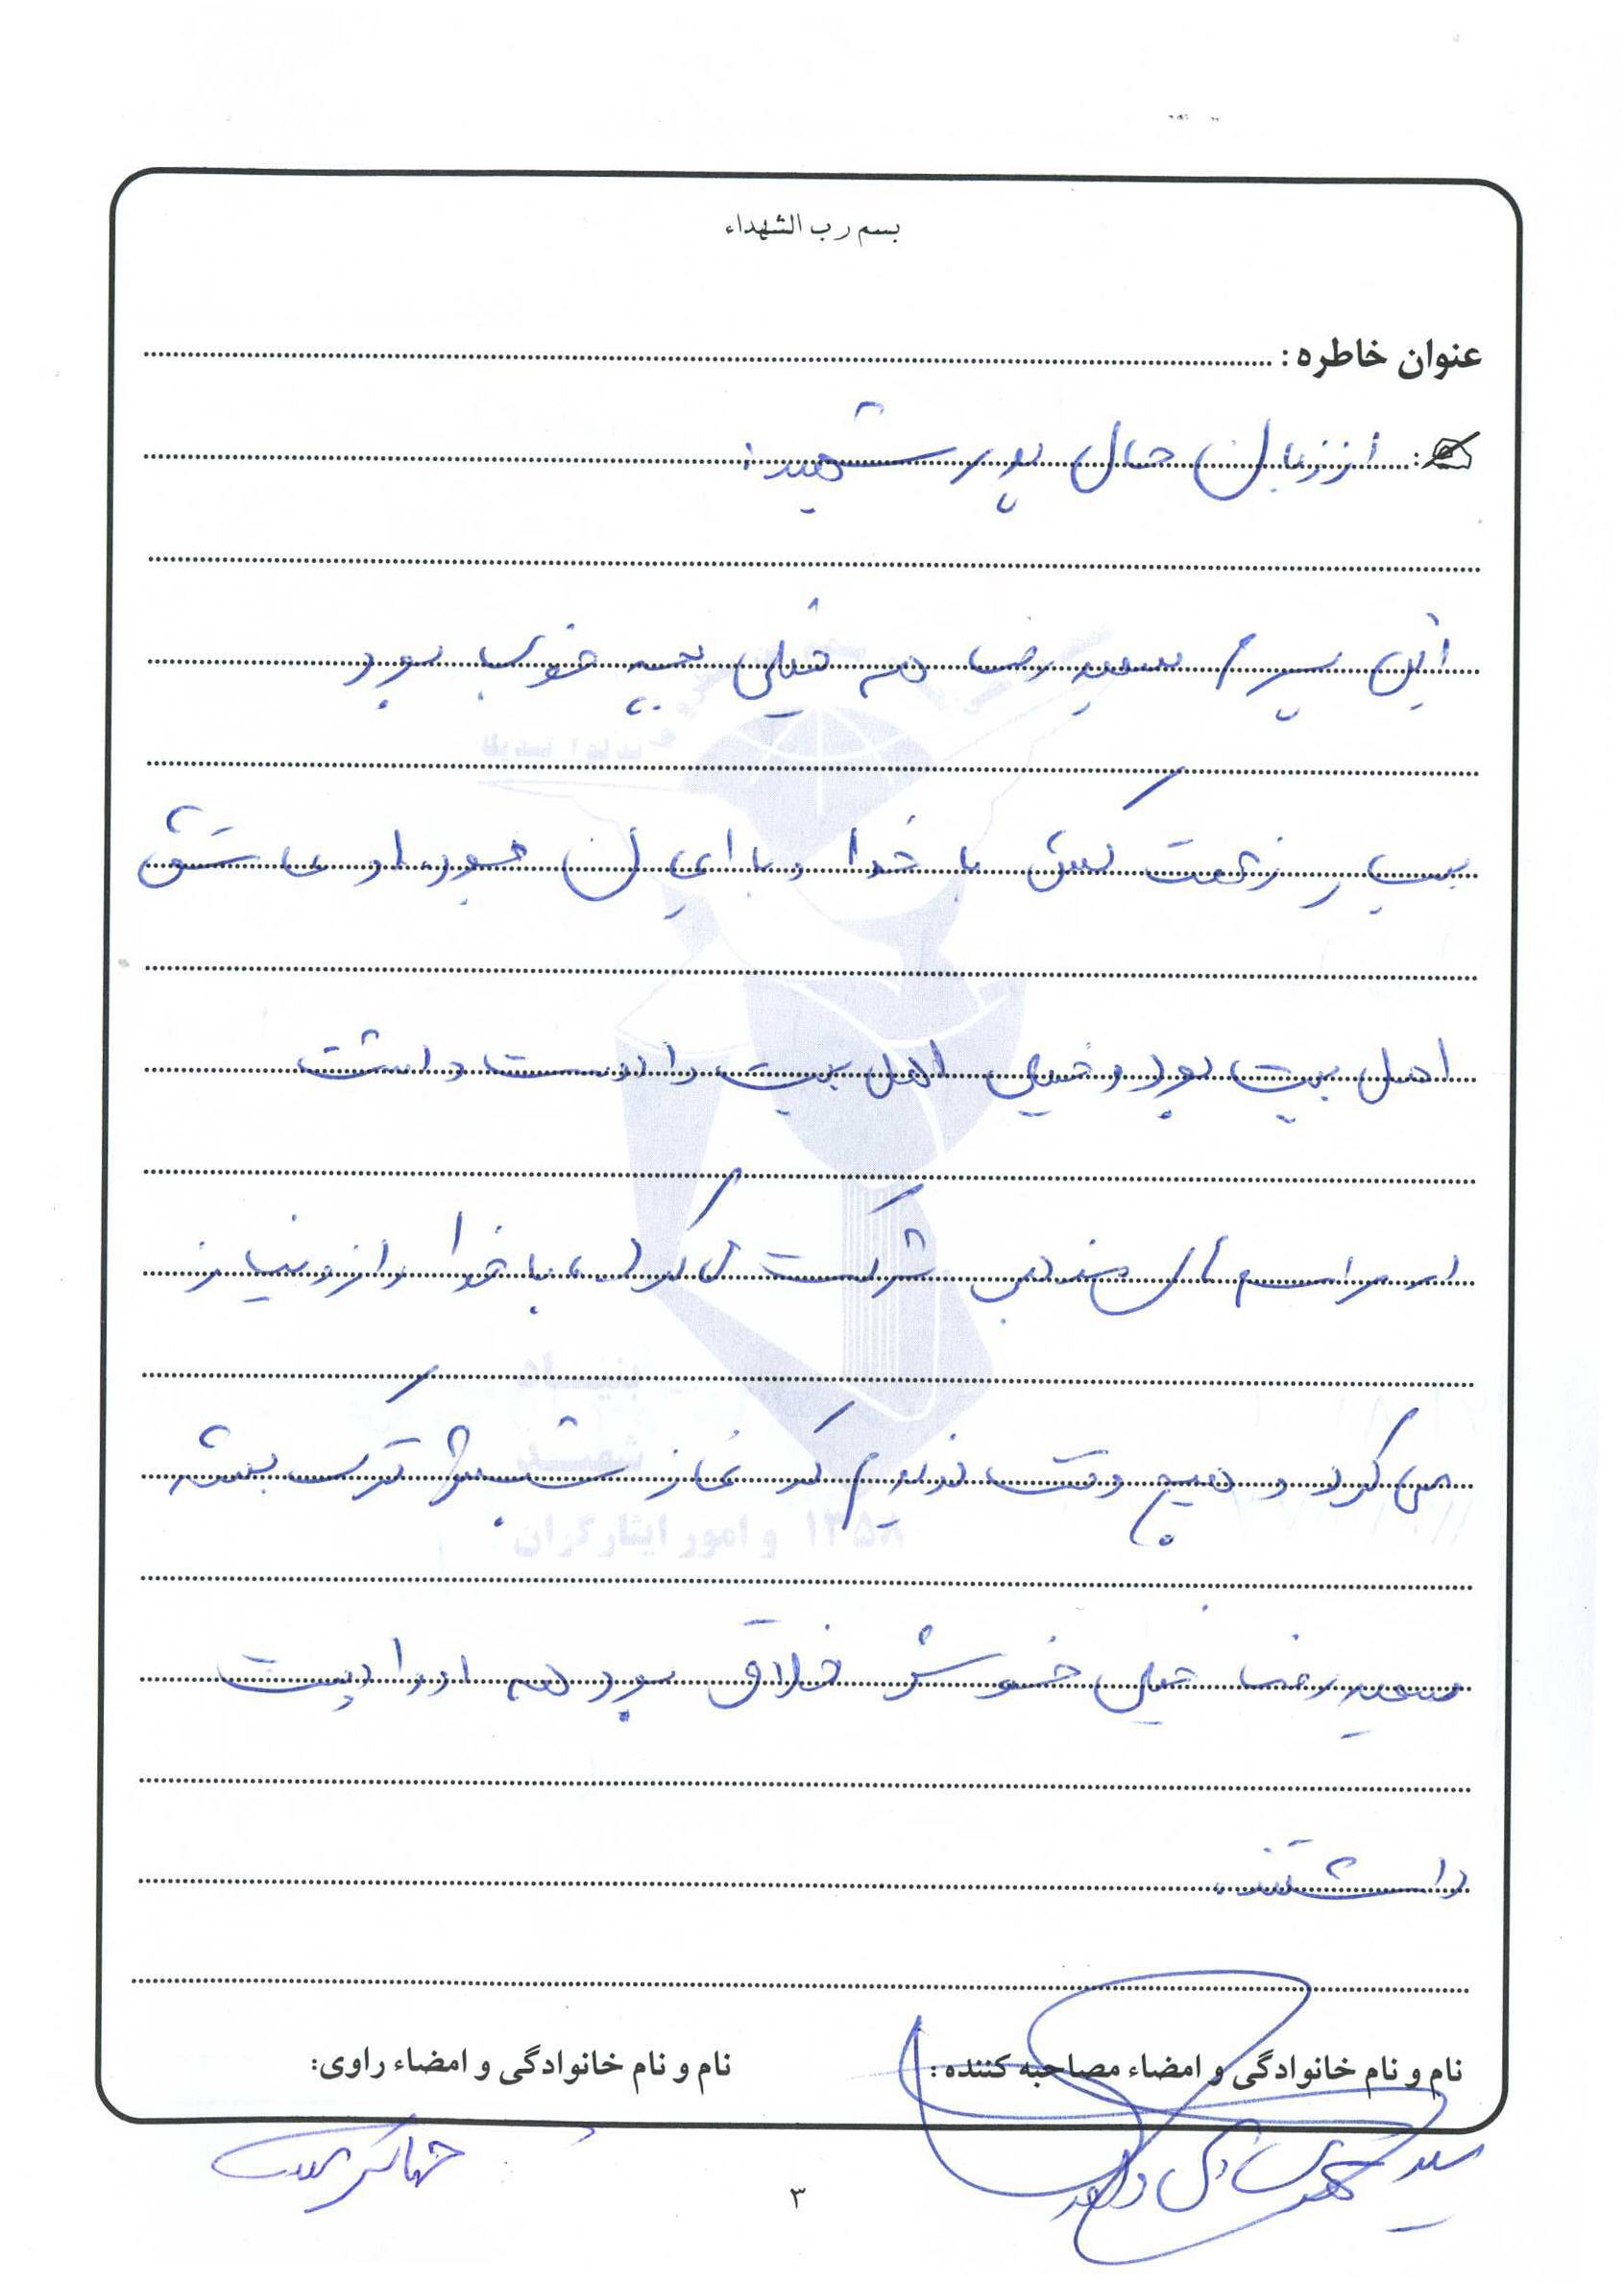 بسم رب الشهداء
عنوان خاطره :
از زبان حال پدر شهید:
این پسرم سعید رضا هم خیلی بچه خوب بود
بسیار زحمت کش با خدا و با ایمان بود. او عاشق
اهل بیت بود و خیلی اهل بیت را دوست داشت
در مراسم های مذهبی شرکت می کرد، با خدا راز و نیاز
می کرد و هیچ وقت ندیدم که نماز شبش ترک بشه
سعید رضا خیلی خوش اخلاق بود همه او را دوست
داشتند.
نام و نام خانوادگی و امضاء مصاحبه کننده :
نام و نام خانوادگی و امضاء راوی:
سید
۳
بنیاد
شهید
و امور ایثارگران ۱۳۵۸